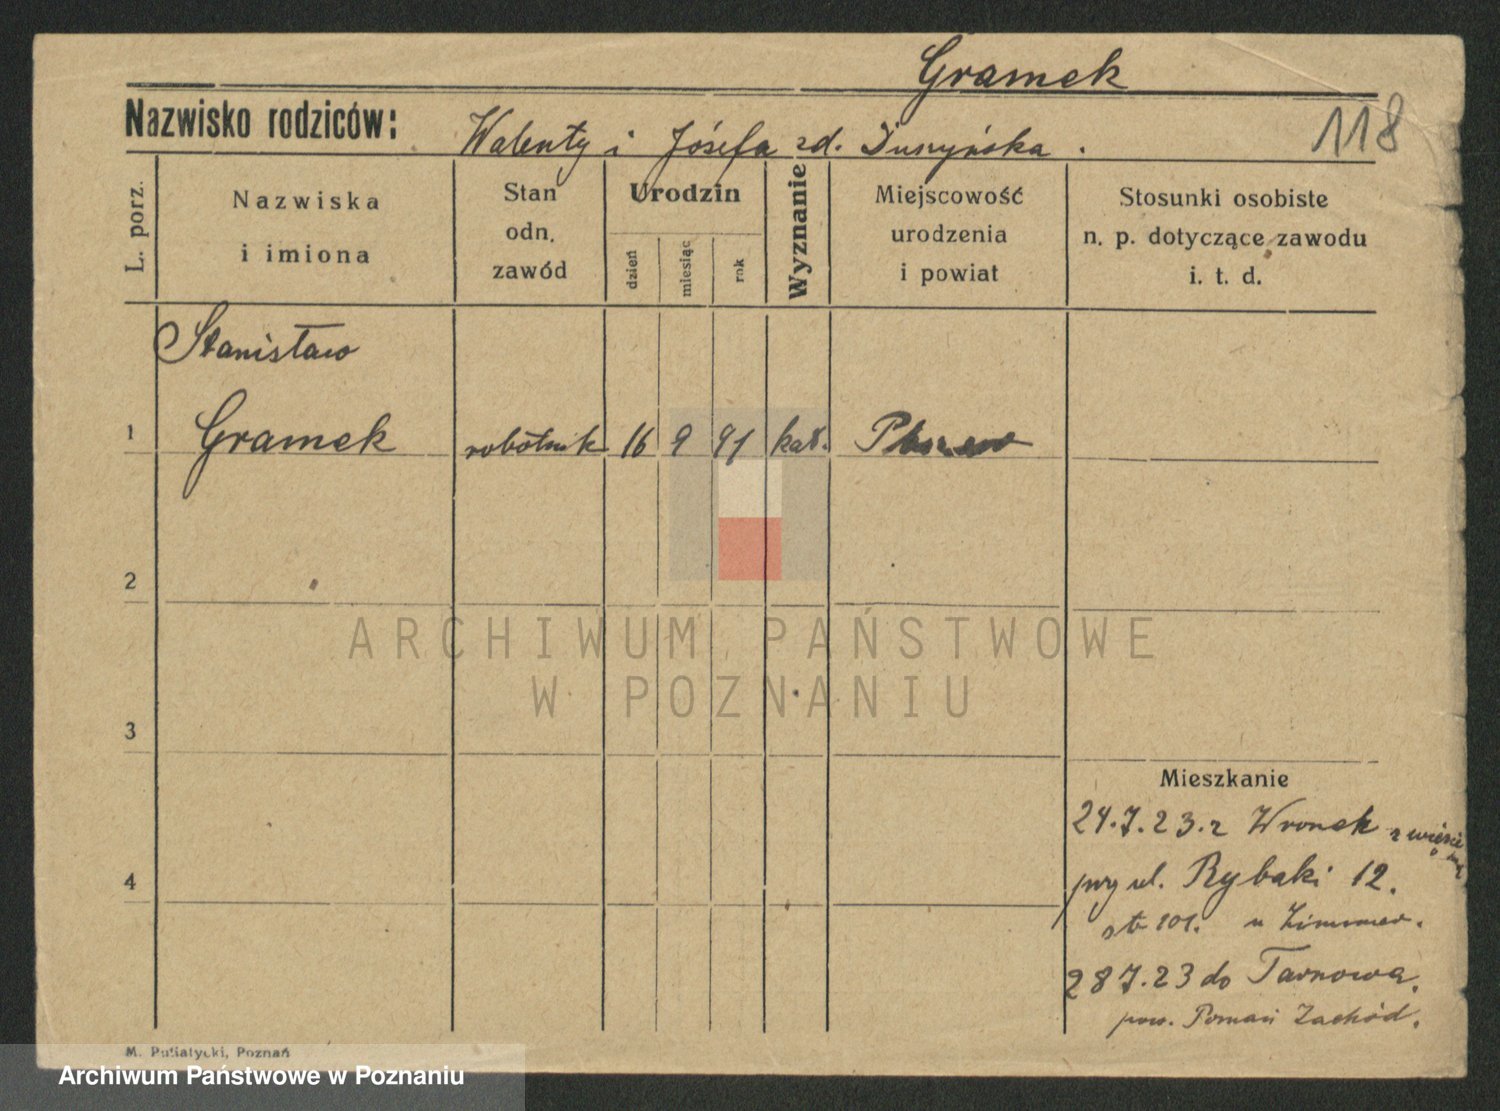 Gramek
Nazwisko rodziców: Walenty i Józefa zd.
118
L. porz.
Nazwiska
i imiona
Stan
odn.
zawód
Urodzin
dzień
miesiąc
rok
Wyznanie
Miejscowość
urodzenia
i powiat
Stosunki osobiste
n. p. dotyczące zawodu
i. t. d.
Stanisław
1 Gramek robotnik 16 9 91 kat.
2
3
4
Mieszkanie
24.7.23. z Wronek z
przy ul. Rybaki 12.
u
28 7.23 do Tarnowa,
pow. Poznań Zachód.
M. Putiatycki, Poznań
ARCHIWUM PAŃSTWOWE
W POZNANIU
Archiwum Państwowe w Poznaniu